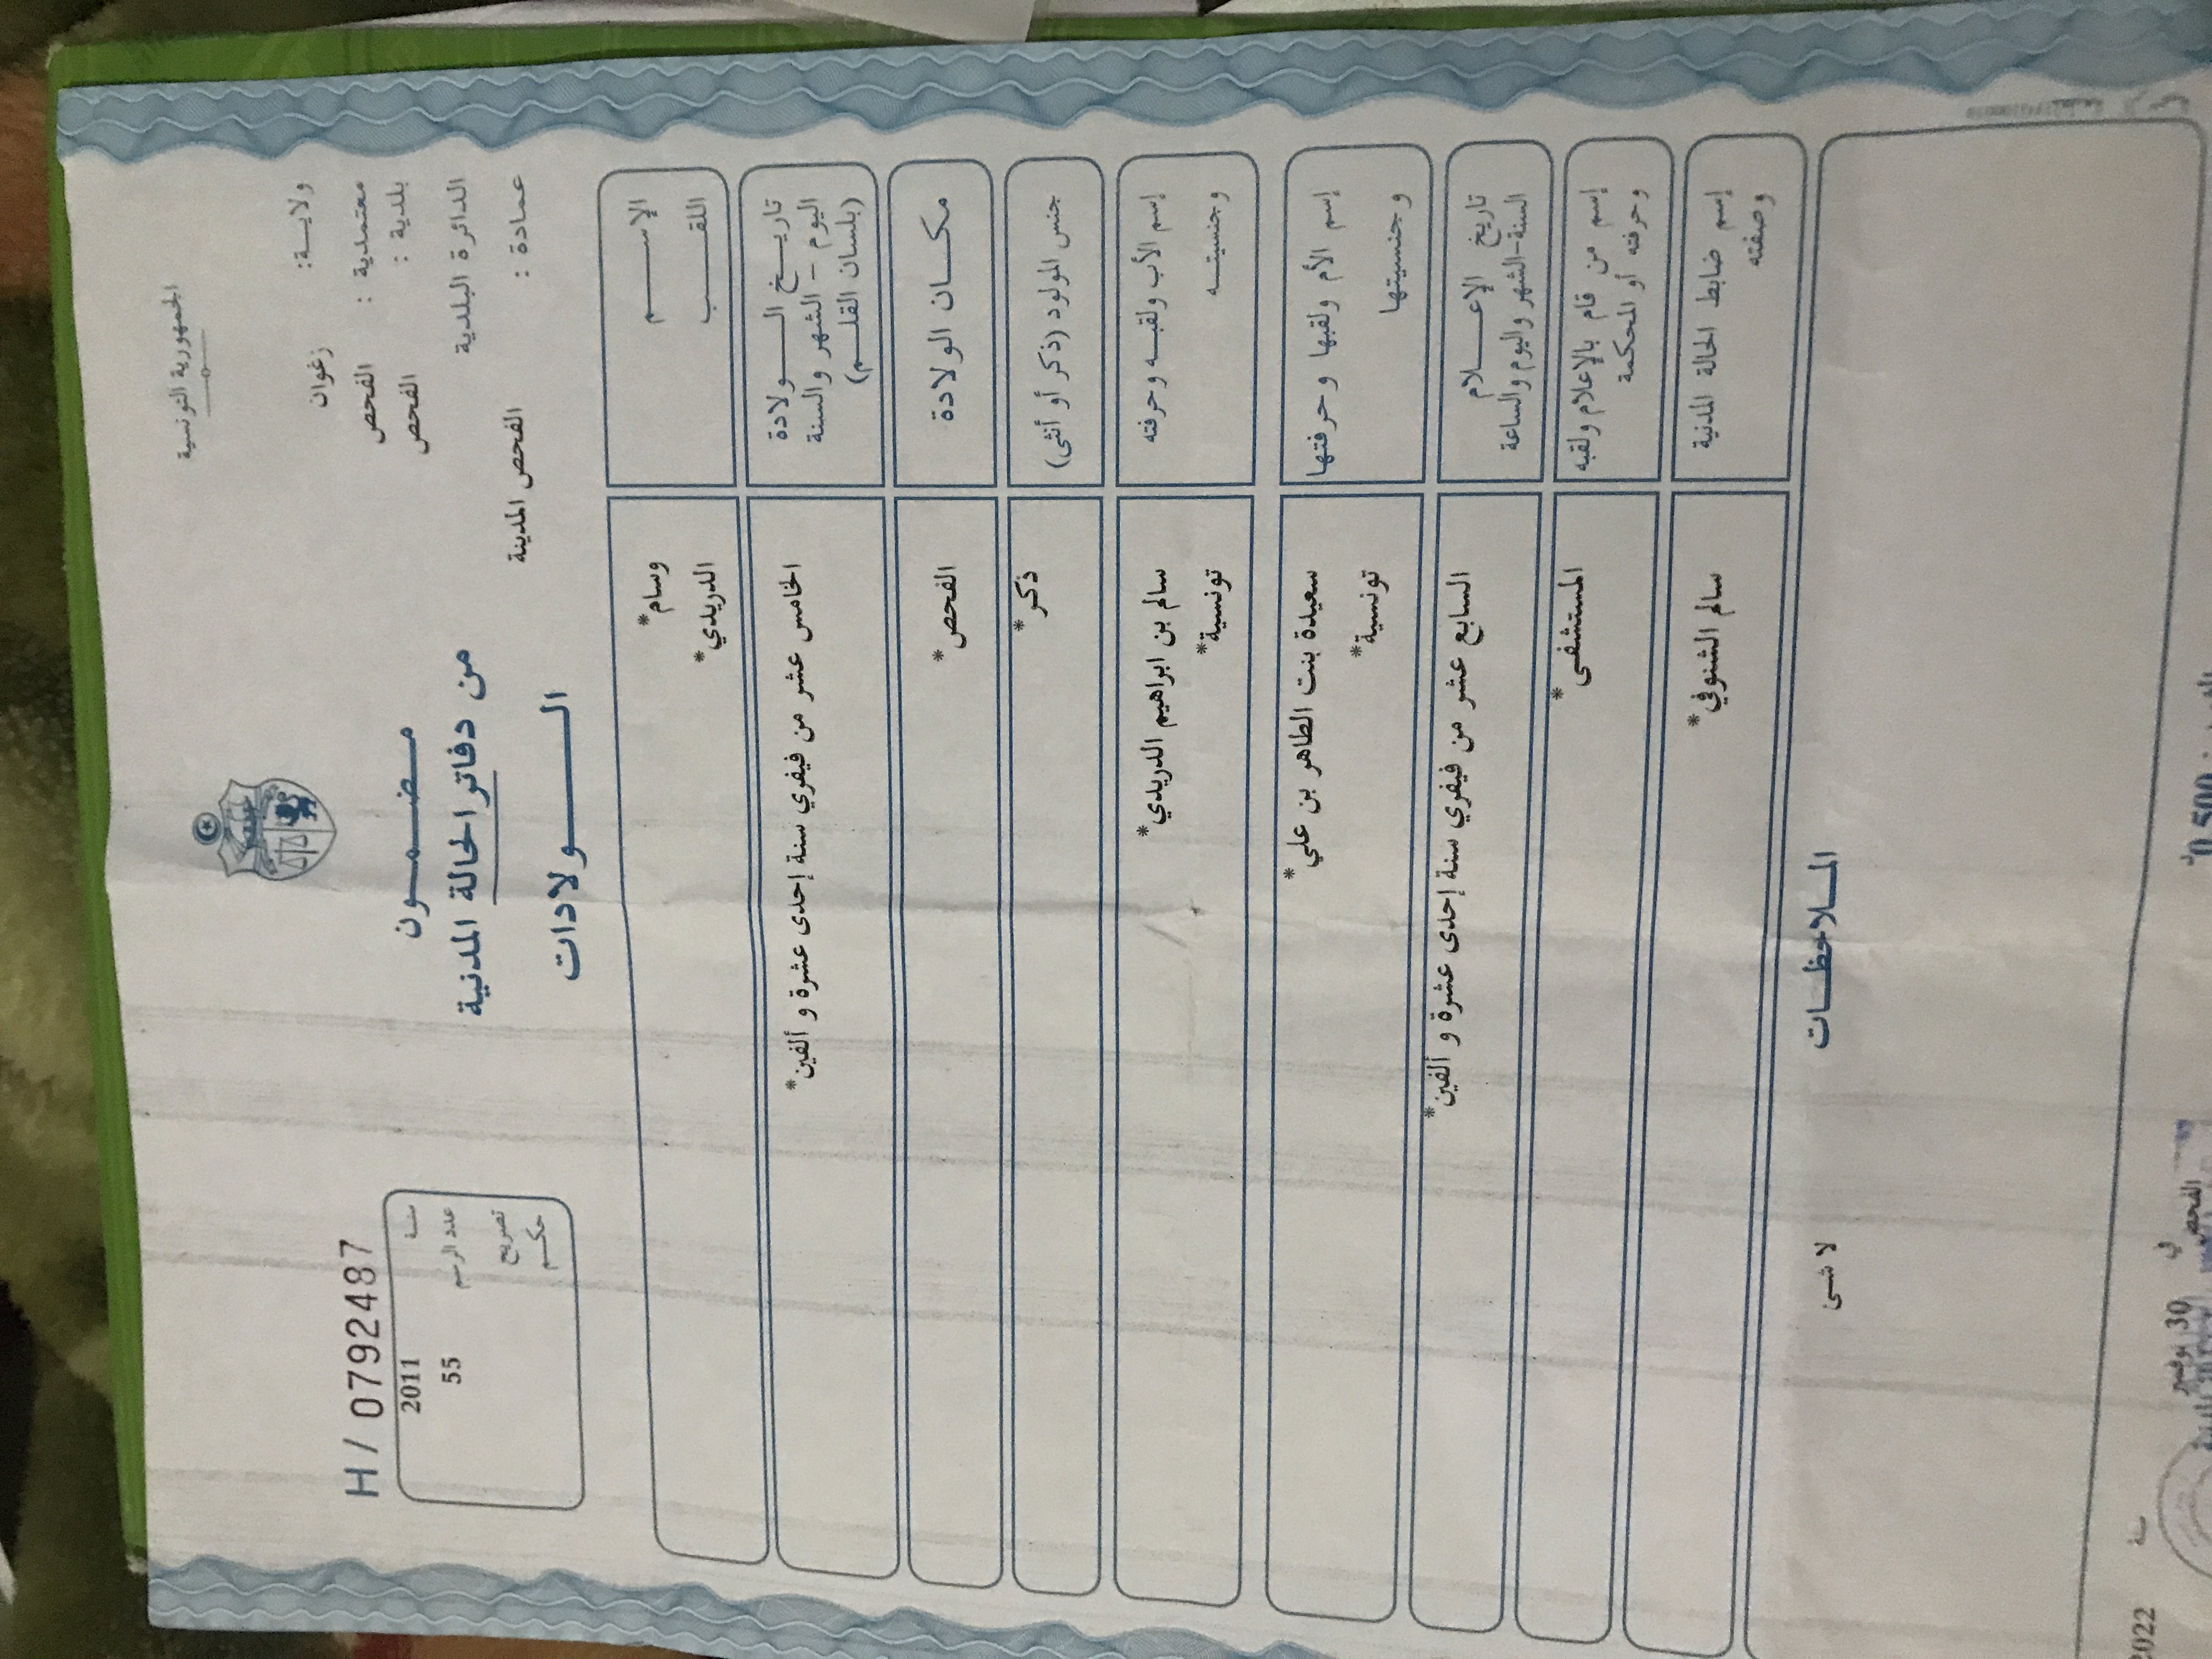 الجمهورية التونسية
ولايـــة: زغوان
معتمدية : الفحص
بلدية : الفحص
الدائرة البلدية
عمادة : الفحص المدينة
مـضـمـــون
من دفاتر الحالة المدنية
الـــولادات
H / 07924487
سنة 2011
عدد الرسم 55
تصريح
حكـم
الإســـم وسام*
اللقـــب الدريدي*
تاريـــخ الـــولادة
اليوم - الشهر والسنة
(بلسان القلـــم)
الخامس عشر من فيفري سنة إحدى عشرة و ألفين*
مكـــان الولادة الفحص*
جنس المولود (ذكر أو أنثى) ذكر*
إسم الأب ولقبـــه وحرفته سالم بن ابراهيم الدريدي*
وجنسيتـــه تونسية*
إسم الأم ولقبها وحرفتها سعيدة بنت الطاهر بن علي*
وجنسيتها تونسية*
تاريخ الإعـــلام
السنة-الشهر واليوم والساعة
السابع عشر من فيفري سنة إحدى عشرة و ألفين*
إسم من قام بالإعلام ولقبه
وحرفته أو المحكمة
المستشفى*
إسم ضابط الحالة المدنية
وصفته
سالم الشنوفي*
المـلاحظـــات
لا شـــئ
0.500
الفحص في 30 نوفمبر سنة 2022